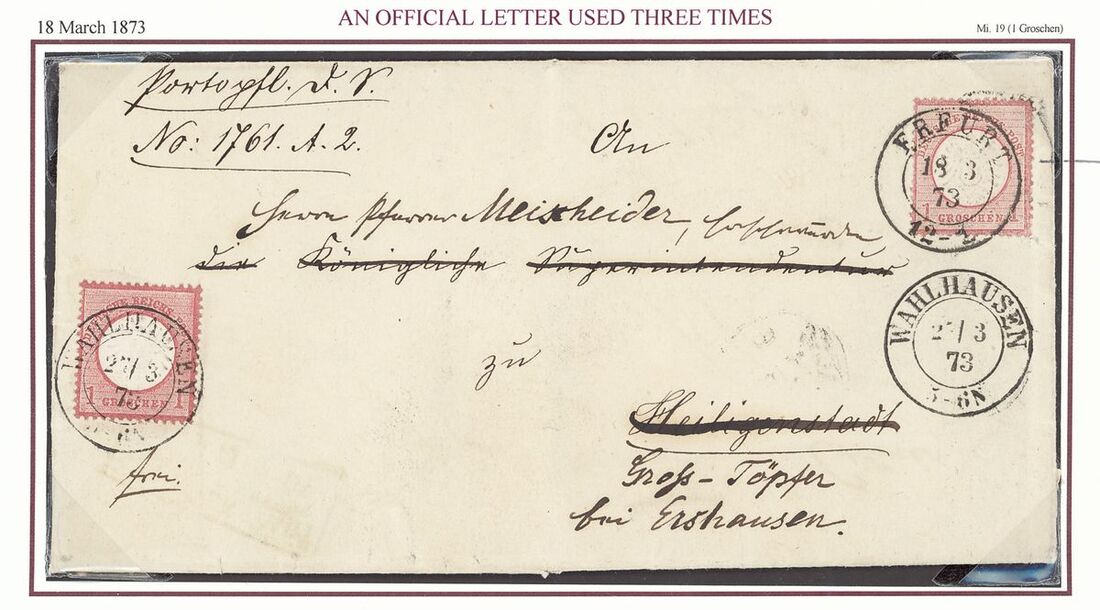 AN OFFICIAL LETTER USED THREE TIMES
18 March 1873
Mi. 19 (1 Groschen)
Portopfl. D. S.
No: 1761. A. 2.
An
ERFURT
18 3
73
12-2
1 GROSCHEN 1
Herrn Pfarrer Meischeider,
die Königliche Superintendentur
WAHLHAUSEN
27/3
73
5-6N
DEUTSCHE REICHS-POST
WAHLHAUSEN
27/3
73
1 GROSCHEN 1
zu
Heiligenstadt
frei.
Gross-Töpfer
bei Ershausen.